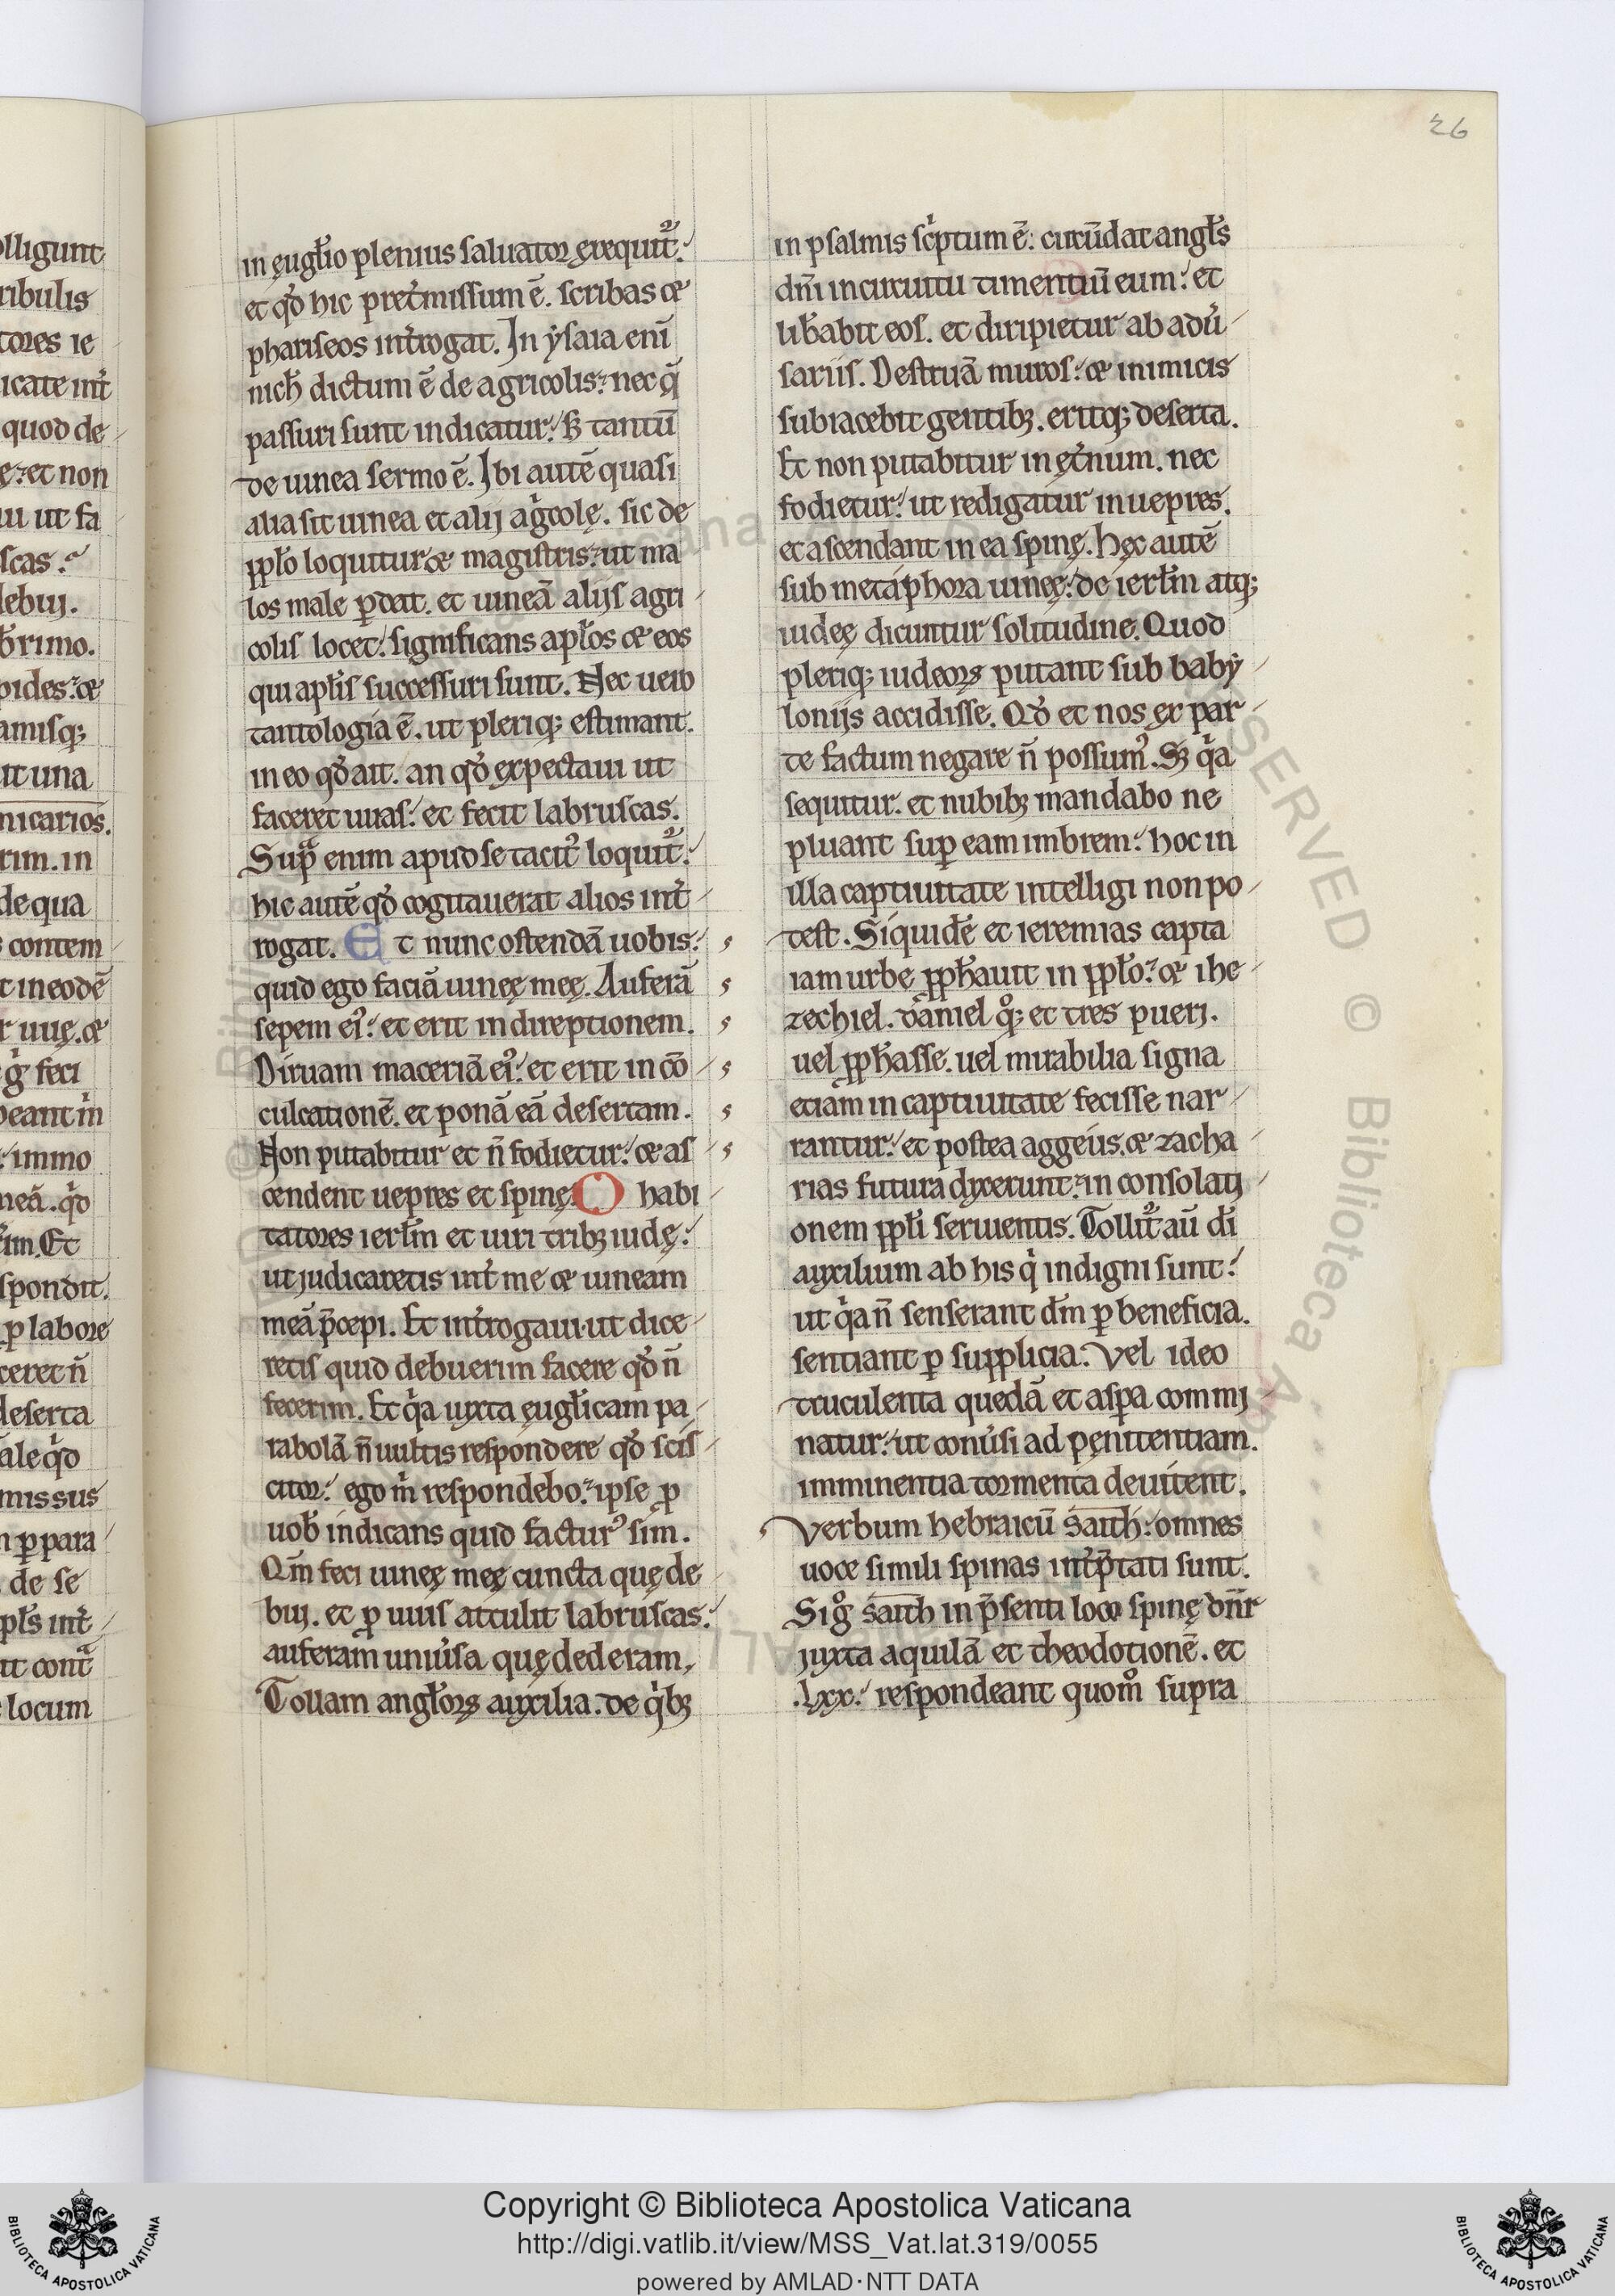 26
in euglio plenius saluator exequit᷑.
et qd̉ hic pret͛missum ē. scribas et
phariseos int͛rogat. In ẏsaia eni̅
nich̅ dictum ē de agricolis. nec q̅
passuri sunt indicatur. sꝫ tantū
de uinea sermo ē. Ibi autē quasi
alia sit uinea et alij agͥcolę. sic de
ppl̅o loquitur et magistris. ut ma
los male ꝑdat. et uineā alijs agri
colis locet. significans apl̅os et eos
qui apl̅is successuri sunt. Nec uero
tantologia ē. ut pleriqꝫ estimant.
in eo qd̉ ait. an qd̉ expectaui ut
faceret uuas. et fecit labruscas.
Supͣ enim apud se tacitꝰ loquit᷑.
hic autē qd̉ cogitauerat alios int͛
rogat. Et nunc ostendā uobis.
quid ego faciā uineę meę. Auferā
sepem eiꝰ. et erit in direptionem.
Diruam maceriā eiꝰ. et erit in cō
culcationē. et ponā eā desertam.
Non putabitur et n̅ fodietur. et as
cendent uepres et spinę. O habi
tatores ierl̅m et uiri tribꝫ iudę.
ut judicaretis int͛ me et uineam
meā p̅cepi. Et int͛rogaui. ut dice
retis quid debuerim facere qd̉ n̅
fecerim. Et qͥa iuxta eugl̅icam pa
rabolā n̅ uultis respondere qd̉ scis
citor. ego mͥ respondebo. ipse ꝑ
uob̅ indicans quid facturꝰ sim.
Qm̅ feci uineę meę cuncta quę de
bui. et ꝑ uuis attulit labruscas.
auferam uniu͛sa quę dederam.
Tollam angl̅oꝝ auxilia. de qͥbꝫ
in psalmis scͥptum ē. circūdat angl̅s
dn̅i in circuitu timentiū eum. et
lib̅abit eos. et diripietur ab adu͛
sariis. Destruā muros. et inimicis
subiacebit gentibꝫ. eritqꝫ deserta.
Et non putabitur in et͛num. nec
fodietur. ut redigatur in uepres.
et ascendant in ea spinę. hęc autē
sub metaphora uineę. de ierl̅m atqꝫ
iudeę dicuntur solitudine. Quod
pleriqꝫ iudeoꝝ putant sub babẏ
lonijs accidisse. Qd̉ et nos ex par
te factum negare n̅ possumꝰ. Sꝫ qͥa
sequitur. et nubibꝫ mandabo ne
pluant suꝑ eam imbrem. hoc in
illa captiuitate intelligi non po
test. Siquidē et ieremias capta
iam urbe ꝓph̅auit in ppl̅o. et ihe
zechiel. daniel qͦꝫ et tres pueri.
uel ꝓph̅asse. uel mirabilia signa
etiam in captiuitate fecisse nar
rantur. et postea aggeus. et zacha
rias futura dixerunt. in consolati
onem ppl̅i seruientis. Tollit᷑ au̅ di̅
auxilium ab his qͥ indigni sunt.
ut qͥa n̅ senserant dm̅ ꝑ beneficia.
sentiant ꝑ supplicia. Vel ideo
truculenta quedā et asꝑa commi
natur. ut conu͛si ad penitentiam.
imminentia tormenta deuitent.
Verbum hebraicū saith. omnes
uoce simili spinas int͛p̅tati sunt.
Sigͦ saith in p̅senti loco spinę dn̅r
juxta aquilā et theodotionē. et
.lxx. respondeant quomͦ supra
Copyright © Biblioteca Apostolica Vaticana
http://digi.vatlib.it/view/MSS_Vat.lat.319/0055
powered by AMLAD·NTT DATA
BIBLIOTECA APOSTOLICA VATICANA
BIBLIOTECA APOSTOLICA VATICANA